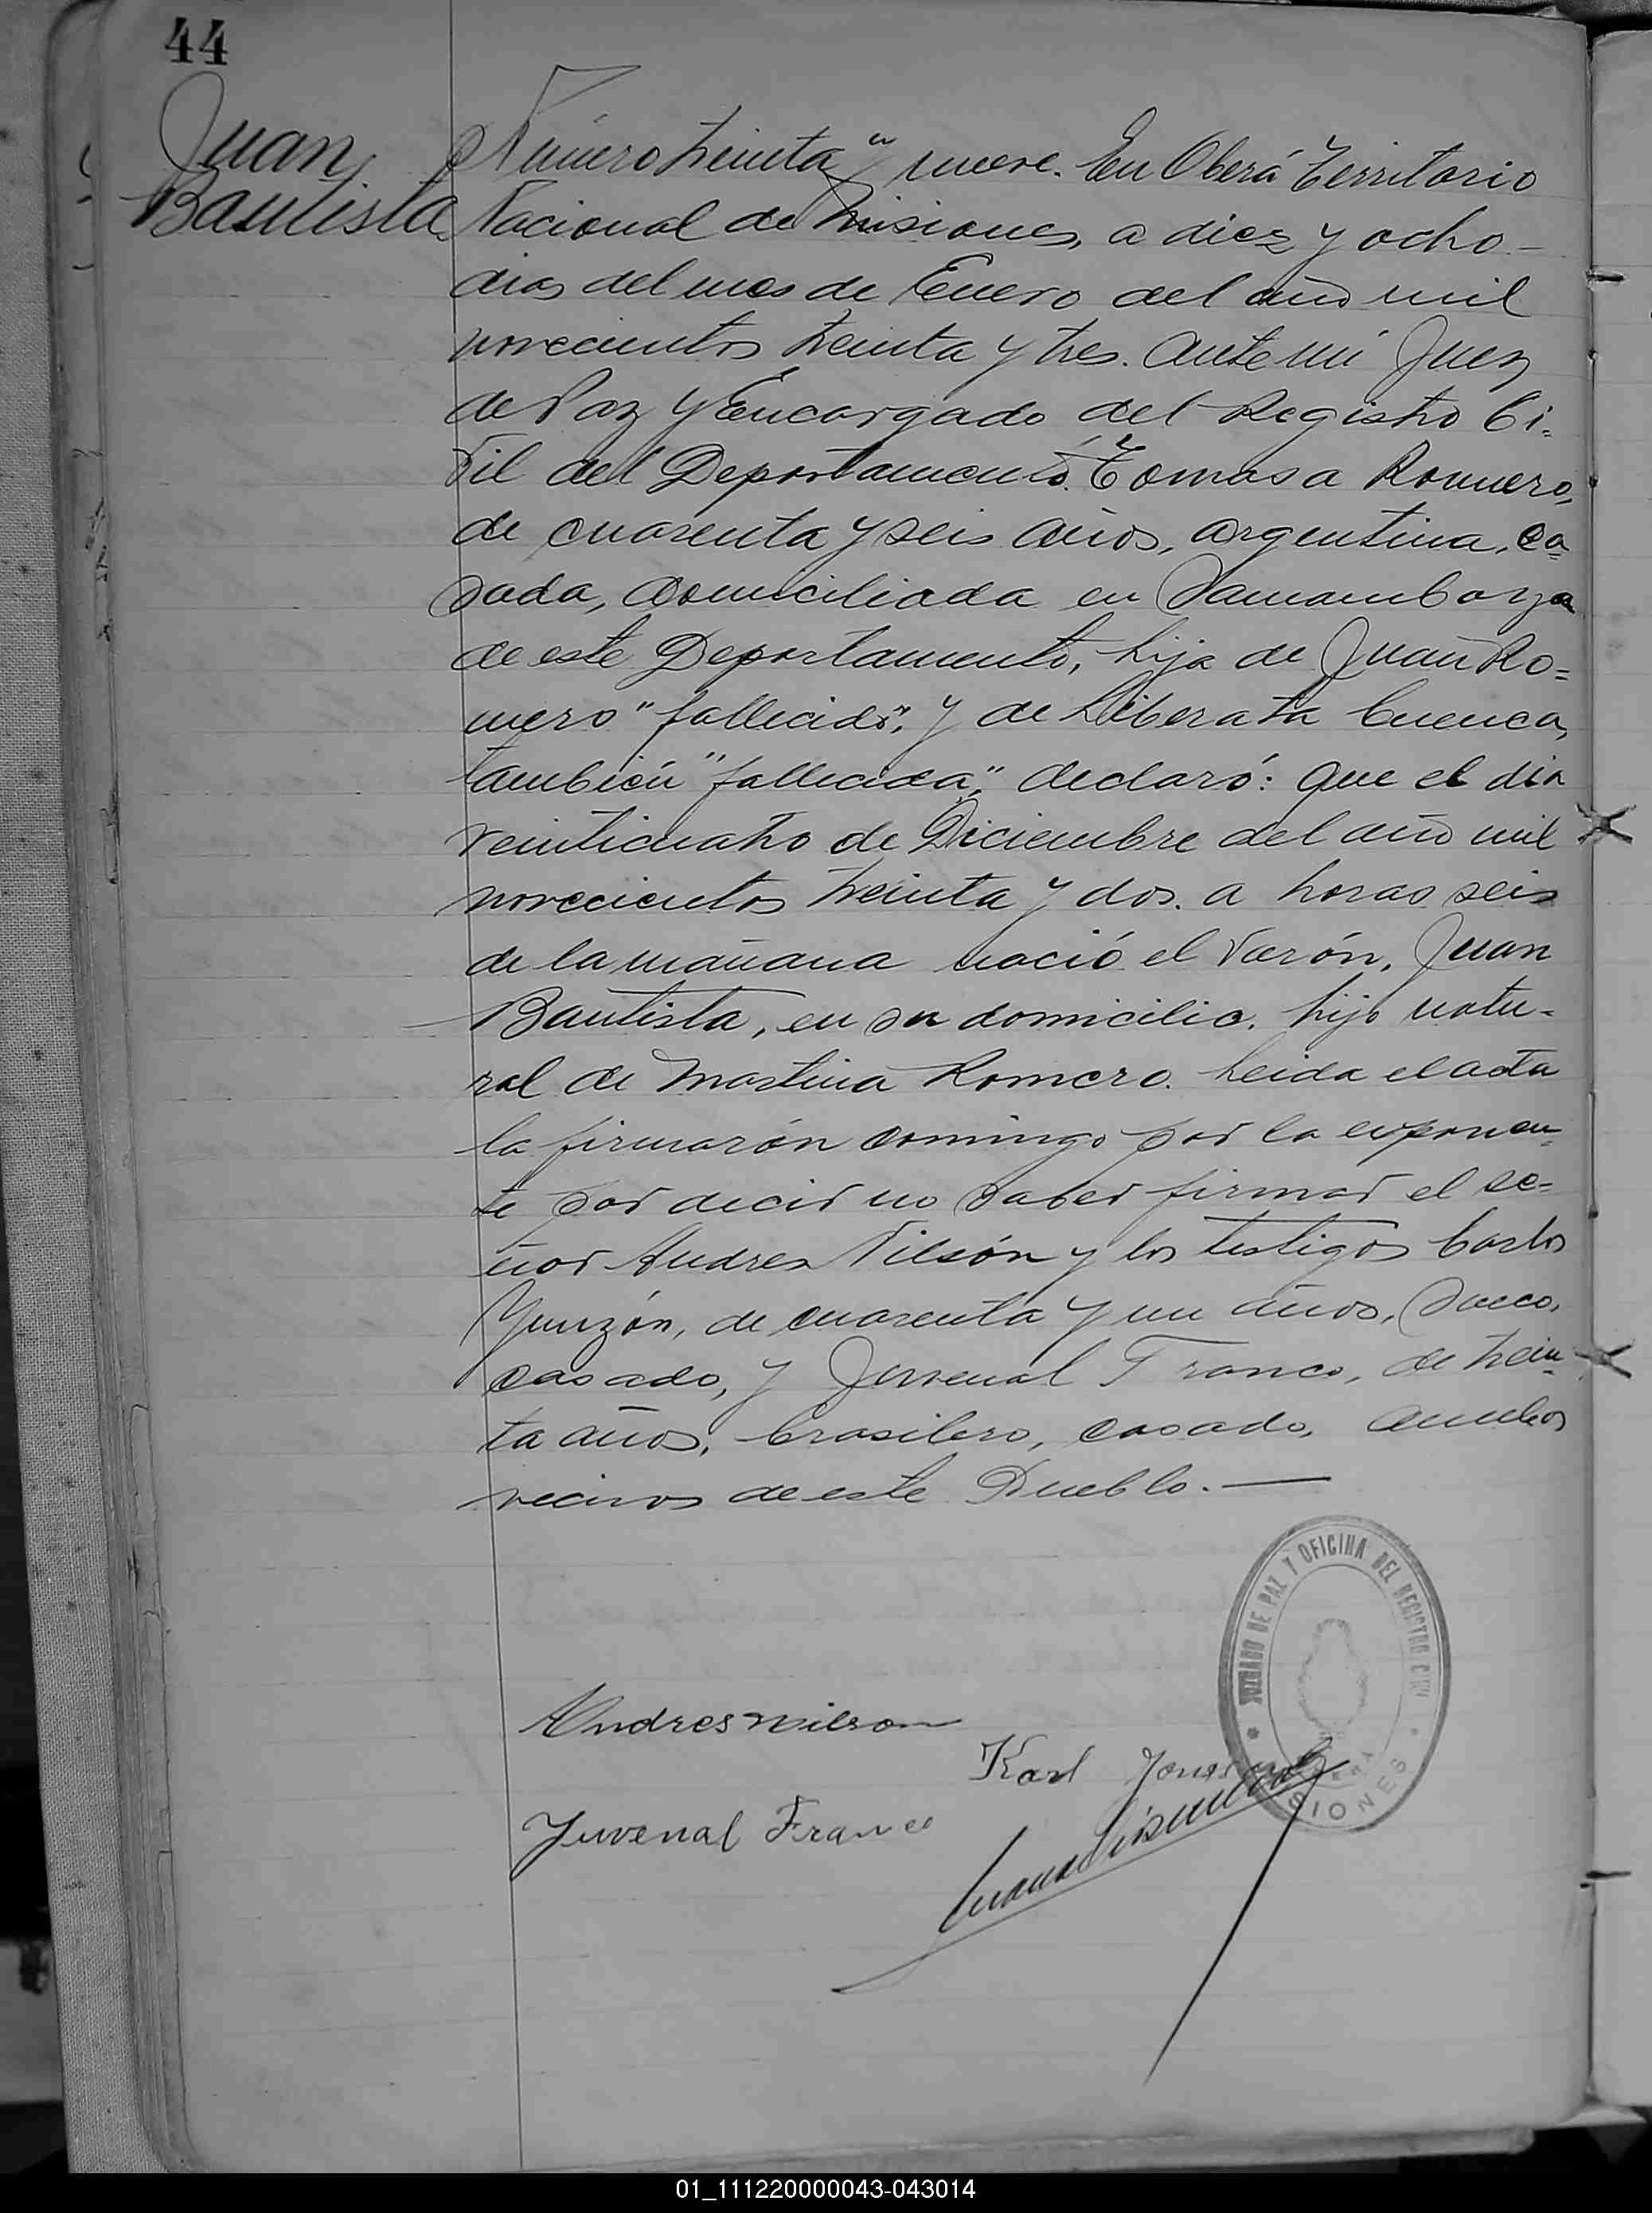 44
Juan
Bautista
Número treinta y nueve. En Oberá Territorio
Nacional de Misiones, a diez y ocho
dias del mes de Enero del año mil
novecientos treinta y tres. Ante mi Juez
de Paz y Encargado del Registro Ci=
vil del Departamento. Tomasa Romero,
de cuarenta y seis años, argentina, ca=
sada, domiciliada en Samambaya
de este Departamento, hija de Juan Ro=
mero "fallecido", y de Liberata Cuenca,
tambien "fallecida", declaró: que el dia
veinticuatro de Diciembre del año mil
novecientos treinta y dos. a horas seis
de la mañana nació el varón, Juan
Bautista, en su domicilio. hijo natu-
ral de Martina Romero. Leida el acta
la firmarón conmingo por la exponen-
te por decir no saber firmar el se=
ñor Andres Nilsón y los testigos Carlos
Yunzón, de cuarenta y un años, Sueco,
casado, y Juvenal Franco, de trein-
ta años, brasilero, casado, ambos
vecinos de este Pueblo.—
JUZGADO DE PAZ Y OFICINA DEL REGISTRO CIVIL
MISIONES
Andres Nilson
Karl
Juvenal Franco
01_111220000043-043014